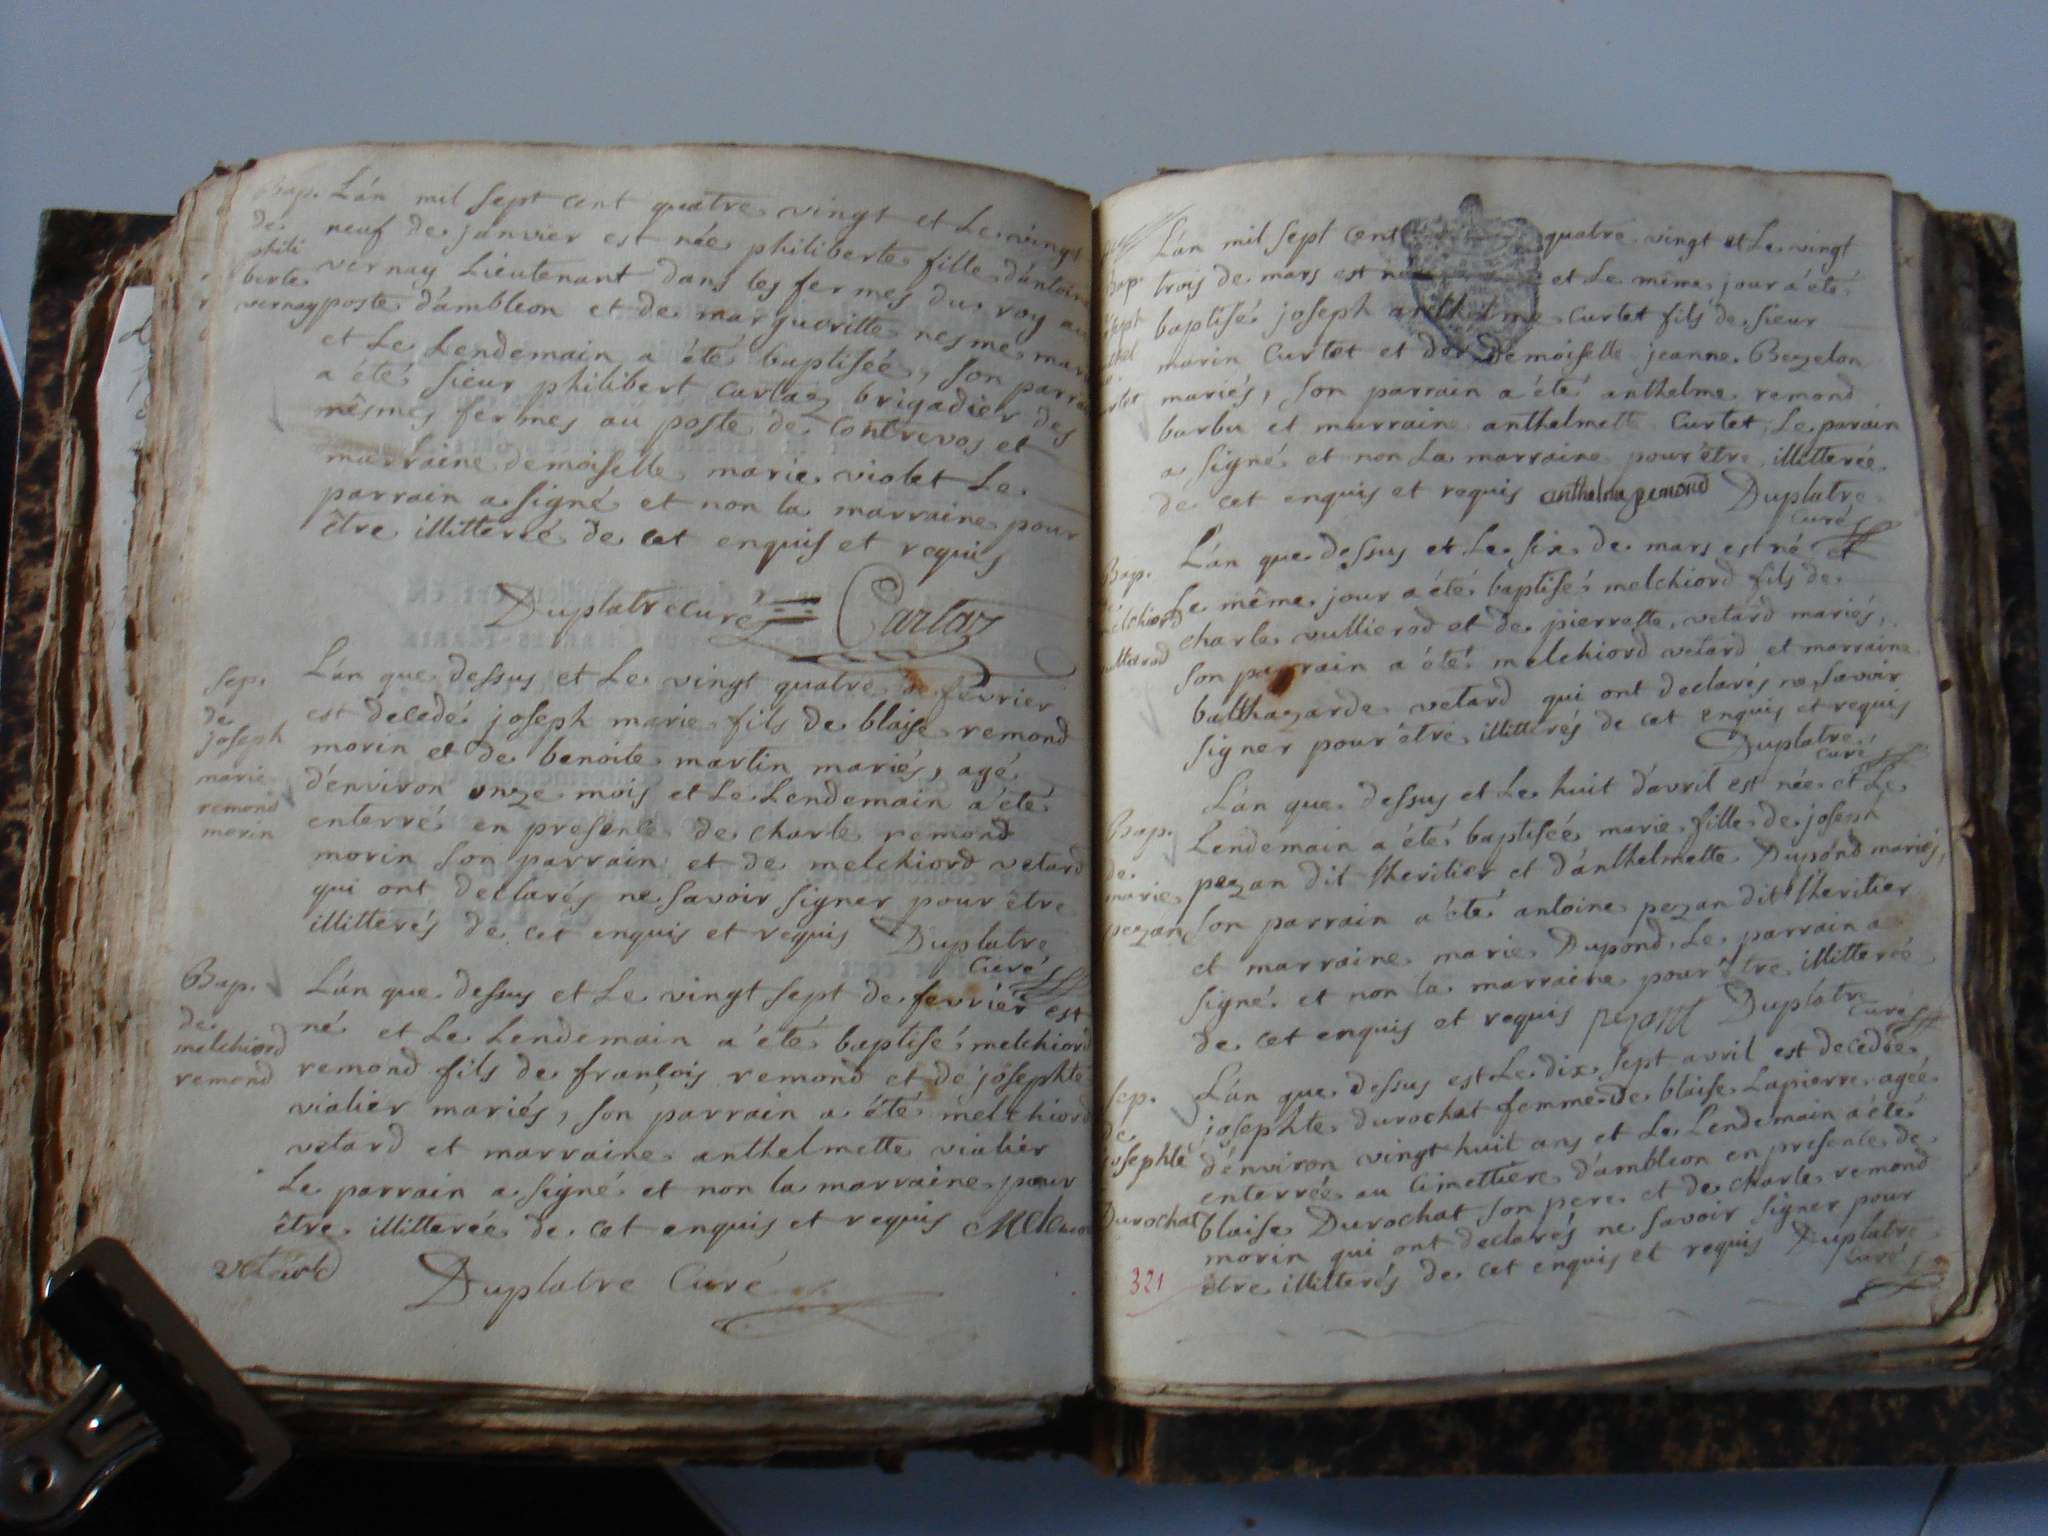 Bap.
de
phili
berte
vernay
L'an mil sept cent quatre vingt et Le vingt
neuf de janvier est née philiberte fille d'antoine
vernay Lieutenant dans les fermes du roy au
poste d'ambleon et de margueritte nesme mari
et Le Lendemain a été baptisée, son parra
a été sieur philibert cartaz brigadier des
mêsmes fermes au poste de Contrevos et
marraine demoiselle marie violet Le
parrain a signé et non la marraine pour
être illitterré de cet enquis et requis
Duplatre curé Cartaz
Sep.
de
joseph
marie
remond
morin
L'an que dessus et Le vingt quatre de fevrier
est decedé joseph marie fils de blaise remond
morin et de benoite martin mariés, agé
d'environ onze mois et Le Lendemain a été
enterré en presence de charle remond
morin son parrain et de melchiord vetard
qui ont declarés ne savoir signer pour être
illitterés de cet enquis et requis Duplatre
Curé
Bap.
de
melchiord
remond
L'an que dessus et Le vingt sept de fevrier est
né et Le Lendemain a été baptisé melchiord
remond fils de françois remond et de josephte
vialier mariés, son parrain a été melchiord
vetard et marraine anthelmette vialier
Le parrain a signé et non la marraine pour
être illitterée de cet enquis et requis
vetard
Duplatre Curé
Bap.
L'an mil sept cent quatre vingt et Le vingt
trois de mars est né et Le même jour a été
baptisé joseph anthelme Curtet fils de sieur
marin Curtet et de demoiselle jeanne Bezelon
mariés, son parrain a été anthelme remond
barbu et marraine anthelmette Curtet, Le parain
a signé et non La marraine pour être illitterée
de cet enquis et requis anthelme remond Duplatre
curé
Bap.
de
melchiord
vullierod
L'an que dessus et Le six de mars est né et
Le même jour a été baptisé melchiord fils de
charle vullierod et de pierrette vetard mariés,
son parrain a été melchiord vetard et marraine
balthazarde vetard qui ont declarés ne savoir
signer pour être illitterés de cet enquis et requis
Duplatre
Curé
Bap.
de
marie
pezan
L'an que dessus et Le huit d'avril est née et Le
Lendemain a été baptisée marie fille de joseph
pezan dit lheritier et d'anthelmette Dupond mariés,
son parrain a été antoine pezan dit lheritier
et marraine marie Dupond, Le parrain a
signé et non la marraine pour être illitterée
de cet enquis et requis pezant Duplatre
curé
Sep.
de
josephte
Durochat
L'an que dessus est Le dix sept avril est decedée
josephte durochat femme de blaise Lapierre agée
d'environ vingt huit ans et Le Lendemain a été
enterrée au Cimettiere d'ambleon en presence de
blaise Durochat son pere et de charle remond
morin qui ont declarés ne savoir signer pour
être illitterés de cet enquis et requis Duplatre
Curé
321